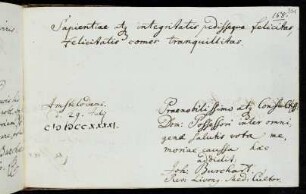 158.
Sapientiae & integritatis pedissequa felicitas
felicitatis comes tranquillitas
Amstelodami
29. July
CIƆIƆCCXXXXI.
Praenobilissimo atq Consultiss.
Dno Possessori inter omni-
gena salutis vota me-
moriae caussa haec
dedit
Joh. Burchart
Med. Cultor.